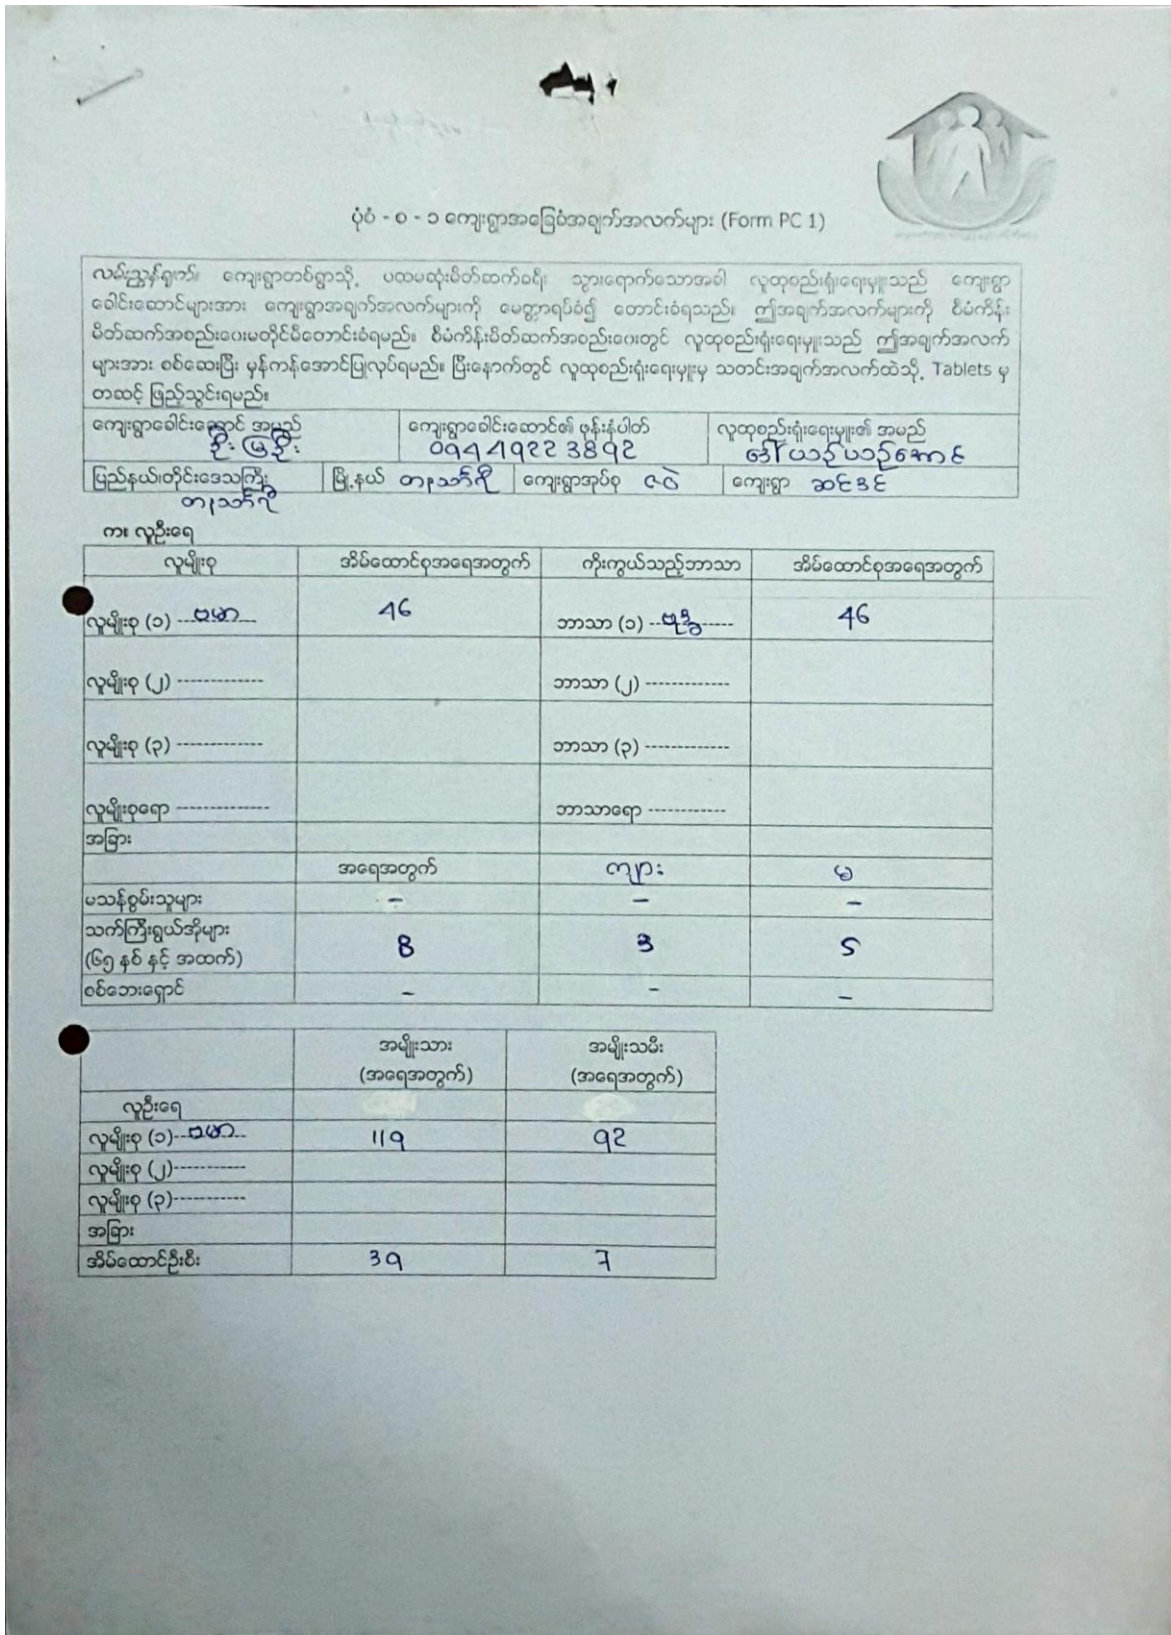 ပုံစံ - စ - ၁ ကျေးရွာအခြေခံအချက်အလက်များ (Form PC 1)
လမ်းညွှန်ချက်၊ ကျေးရွာတစ်ရွာသို့ ပထမဆုံးမိတ်ဆက်ခရီး သွားရောက်သောအခါ လူထုစည်းရုံးရေးမှူးသည် ကျေးရွာ
ခေါင်းဆောင်များအား ကျေးရွာအချက်အလက်များကို မေတ္တာရပ်ခံ၍ တောင်းခံရသည်။ ဤအချက်အလက်များကို စီမံကိန်း
မိတ်ဆက်အစည်းဝေးမတိုင်မီတောင်းခံရမည်။ စီမံကိန်းမိတ်ဆက်အစည်းဝေးတွင် လူထုစည်းရုံးရေးမှူးသည် ဤအချက်အလက်
များအား စစ်ဆေးပြီး မှန်ကန်အောင်ပြုလုပ်ရမည်။ ပြီးနောက်တွင် လူထုစည်းရုံးရေးမှူးမှ သတင်းအချက်အလက်ထဲသို့ Tablets မှ
တဆင့် ဖြည့်သွင်းရမည်။
ကျေးရွာခေါင်းဆောင် အမည် ကျေးရွာခေါင်းဆောင်၏ ဖုန်းနံပါတ် လူထုစည်းရုံးရေးမှူး၏ အမည်
ဦးမြဦး 09449223892 ဒေါ်ယဉ်ယဉ်အောင်
ပြည်နယ်၊တိုင်းဒေသကြီး မြို့နယ် တနင်္သာရီ ကျေးရွာအုပ်စု ကျေးရွာ
တနင်္သာရီ
က။ လူဦးရေ
လူမျိုးစု အိမ်ထောင်စုအရေအတွက် ကိုးကွယ်သည့်ဘာသာ အိမ်ထောင်စုအရေအတွက်
လူမျိုးစု (၁) --ဗမာ-- 46 ဘာသာ (၁) --ဗုဒ္ဓ----- 46
လူမျိုးစု (၂) ------------- ဘာသာ (၂) -------------
လူမျိုးစု (၃) ------------- ဘာသာ (၃) -------------
လူမျိုးစုရော -------------- ဘာသာရော ------------
အခြား
အရေအတွက် ကျား မ
မသန်စွမ်းသူများ - - -
သက်ကြီးရွယ်အိုများ
(၆၅ နှစ် နှင့် အထက်) 8 3 5
စစ်ဘေးရှောင် - - -
အမျိုးသား အမျိုးသမီး
(အရေအတွက်) (အရေအတွက်)
လူဦးရေ
လူမျိုးစု (၁)--ဗမာ-- 119 92
လူမျိုးစု (၂)-----------
လူမျိုးစု (၃)-----------
အခြား
အိမ်ထောင်ဦးစီး 39 7